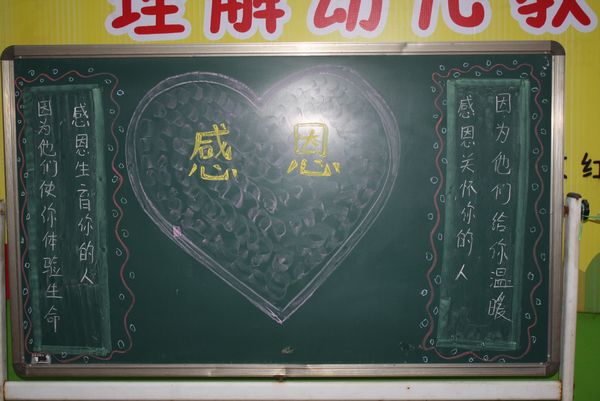 理解幼儿教
感恩
感恩生育你的人
因为他们使你体验生命
感恩关怀你的人
因为他们给你温暖
红